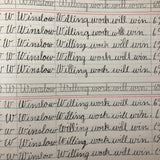 W Winslow Willing work will win.
W Winslow Willing work will win.
W Winslow Willing work will win.
W Winslow Willing work will win.
W Winslow Willing work will win.
W Winslow Willing work will win.
W Winslow Willing work will win.